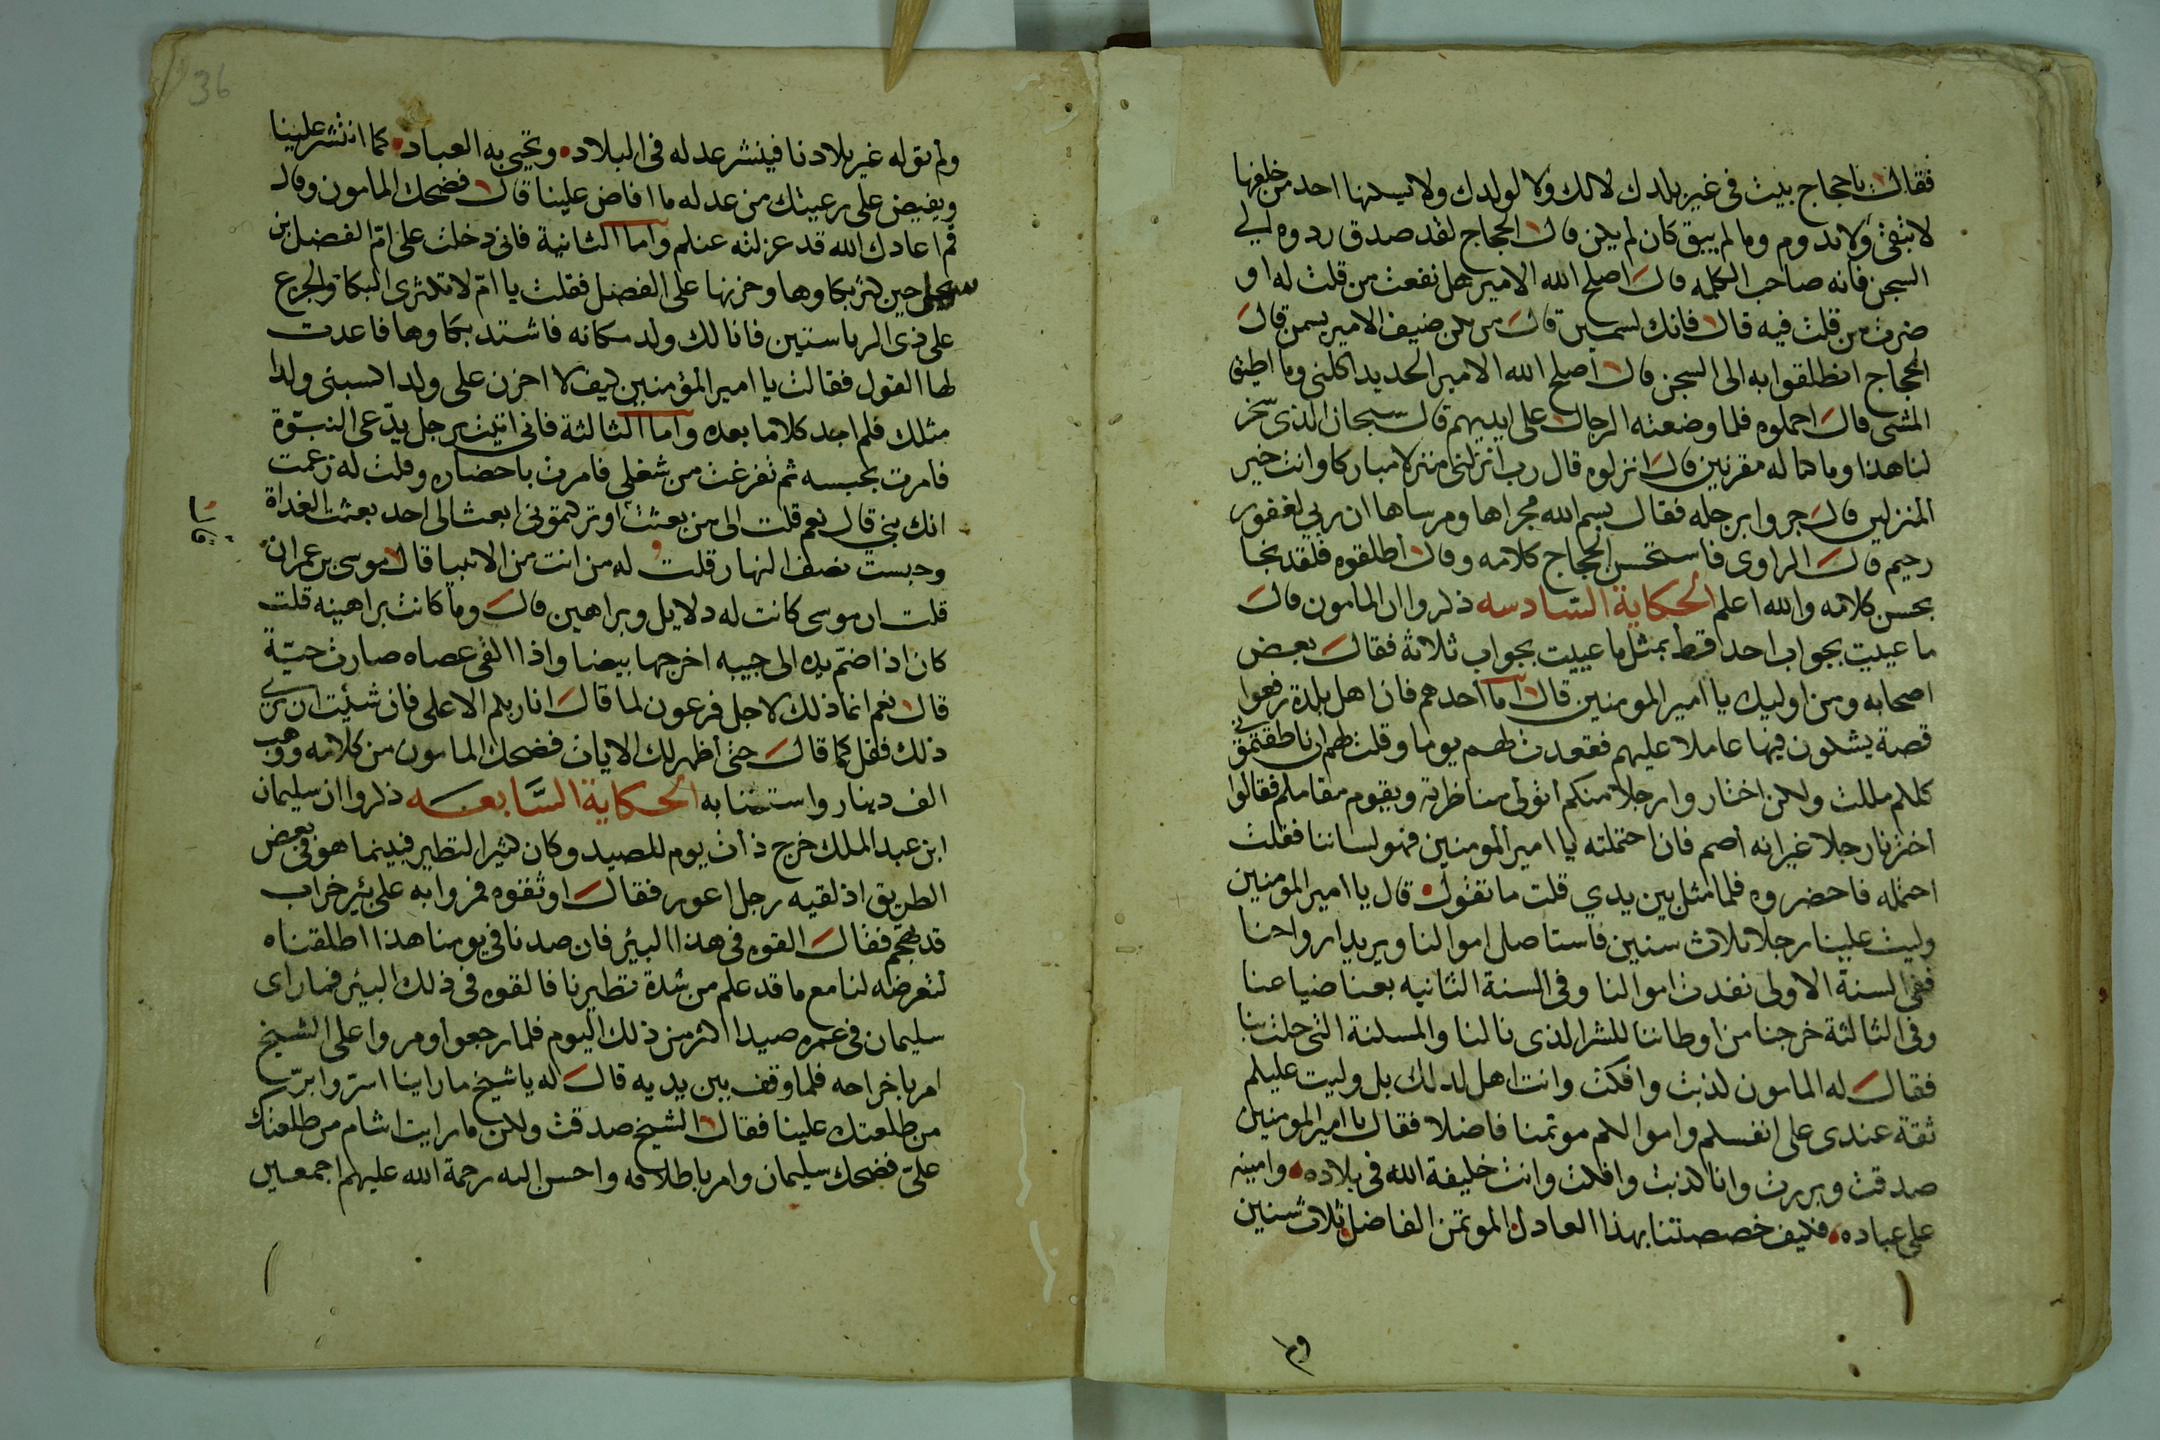 فقال يا حجاج بنيت في غير بلدك لا لك ولا لولدك ولا يسكنها احد من خلفها
لا تبقى ولا تدوم وما لم يبق كان لم يكن قال الحجاج لقد صدق ردوه الي
السجن فانه صاحب الكلمه قال اصلح الله الامير هل نفعت من قلت له او
ضرت من قلت فيه قال فانك لسمين قال من يكن ضيف الامير يسمن قال
الحجاج انطلقوا به الى السجن قال أصلح الله الامير الحديد اكلني وما اطيق
المشي قال احملوه فلما وضعته الرجال على ايديهم قال سبحان الذي سخر
لنا هذا وما كنا له مقرنين قال انزلوه قال رب انزلني منزلا مباركا وانت خير
المنزلين قال جروا برجله فقال بسم الله مجراها ومرساها ان ربي لغفور
رحيم قال الراوى فاستحسن الحجاج كلامه وقال أطلقوه فلقد نجا
بحسن كلامه والله اعلم الحكاية السادسه ذكروا ان المامون قال
ما عييت بجواب احد قط بمثل ما عييت بجواب ثلاثة فقال بعض
اصحابه ومن اوليك يا امير المومنين قال اما احدهم فان اهل بلدة رفعوا
قصة يشكون فيها عاملا عليهم فقعدت لهم يوما وقلت لهم ان ناطقتموني
كلكم مللت ولكن اختاروا رجلا منكم اتولى مناظرته ويقوم مقامكم فقالوا
اخترنا رجلا غير انه أصم فان احتملته يا امير المومنين فهو لساننا فقلت
احتمله فاحضروه فلما مثل بين يدي قلت ما تقول قال يا امير المومنين
وليت علينا رجلا ثلاث سنين فاستاصل اموالنا ويريد ارواحنا
ففي السنة الاولى نفدت اموالنا وفي السنة الثانيه بعنا ضياعنا
وفي الثالثة خرجنا من أوطاننا للشر الذي نالنا والمسكنة التي حلت بنا
فقال له المامون كذبت وافكت وانت اهل لذلك بل وليت عليكم
ثقة عندى على انفسكم واموالكم موتمنا فاضلا فقال يا امير المومنين
صدقت وبررت وانا كذبت وافكت وانت خليفة الله في بلاده وامينه
على عباده فكيف خصصتنا بهذا العادل الموتمن الفاضل ثلاث سنين
ولم
36
ولم توله غير بلادنا فينشر عدله في البلاد وتحيى به العباد كما انتشر علينا
ويفيض على رعيتك من عدله ما افاض علينا قال فضحك المامون وقال
قم اعادك الله قد عزلته عنكم وأما الثانية فاني دخلت على ام الفضل بن
سهل حين كثر بكاوها وحزنها على الفضل فقلت يا ام لا تكثرى البكا والجزع
على ذى الرياستين فانا لك ولد مكانه فاشتد بكاوها فاعدت
لها القول فقالت يا امير المؤمنين كيف لا احزن على ولد اكسبني ولدا
مثلك فلم اجد كلاما بعده وأما الثالثة فاني اتيت برجل يدعى النبوة
فامرت بحبسه ثم تفرغت من شغلي فامرت باحضاره وقلت له زعمت
انك نبي قال نعم قلت الى من بعثت أو تركتموني ابعث الى احد بعثت الغداة
وحبست نصف النهار قلت له من انت من الانبيا قال موسى بن عمران
قلت ان موسى كانت له دلايل وبراهين قال وما كانت براهينه قلت
كان اذا ضم يده الى جيبه اخرجها بيضا واذا القى عصاه صارت حية
قال نعم انما ذلك لاجل فرعون لما قال انا ربكم الاعلى فان شئت ان ترى
ذلك فقل كما قال حتى أظهر لك الايات فضحك المامون من كلامه ووهب
الف دينار واستتابه الحكاية السابعه ذكروا ان سليمان
ابن عبد الملك خرج ذات يوم للصيد وكان كثير التطير فبينما هو في بعض
الطريق اذ لقيه رجل اعور فقال اوثقوه فمروا به على بئر خراب
قد فقال القوه في هذا البئر فان صدنا في يومنا هذا اطلقناه
لتعرضه لنا مع ما قد علم من شدة تطيرنا فالقوه في ذلك البئر فما راى
سليمان في عمره صيدا اكثر من ذلك اليوم فلما رجعوا ومروا على الشيخ
امر باخراجه فلما وقف بين يديه قال له يا شيخ ما راينا اسر وابرك
من طلعتك علينا فقال الشيخ صدقت ولكن ما رايت اشام من طلعتك
علي فضحك سليمان وامر باطلاقه واحسن اليه رحمة الله عليهم اجمعين